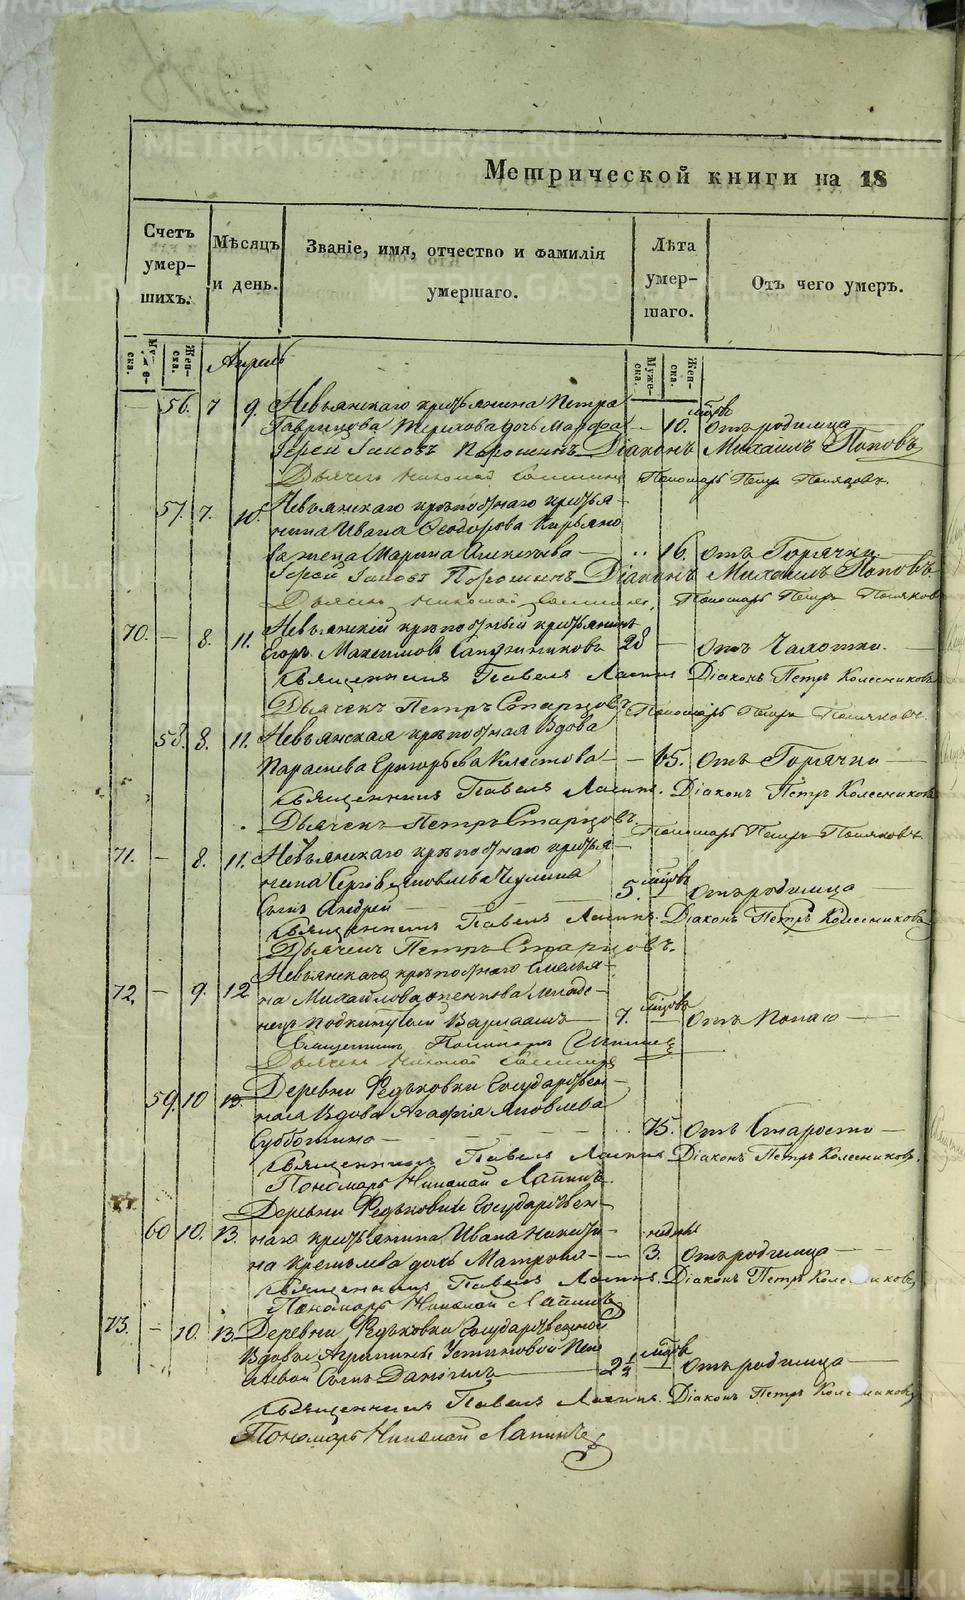 Метрической книги на 18
Счетъ умершихъ.
Мѣсяцъ и день.
Званіе, имя, отчество и фамилія умершаго.
Лѣта умершаго.
Отъ чего умеръ.
Муже- ска.
Жен- ска.
Апрель
Муже- ска.
Жен- ска.
56. 7 9. Невьянскаго крестьянина Петра мѣсцов
Гаврилова дочь Марфа — 10. отъ родимца
Іерей Іаковъ Порошинъ Діаконъ Михаилъ Поповъ
Дьячекъ Николай Пономарь Петръ Поляковъ.
57. 7. 10. Невьянскаго крѣпостнаго крестья-
нина Ивана Ѳеодорова Кирьяно
ва жена Марина Алексѣева — 16. отъ Горячки.
Іерей Іаковъ Порошинъ Діаконъ Михаилъ Поповъ
Дьячекъ Николай Пономарь Петръ Поляковъ
70. — 8. 11. Невьянскій крѣпостный крестьянинъ
Егоръ Максимовъ 28 — отъ Чахотки.
Священникъ Павелъ Діаконъ Петръ Колесниковъ
Дьячекъ Петръ Старцовъ Пономарь Петръ Поляковъ.
58. 8. 11. Невьянская крѣпостная Вдова
Параскева Григорьева — 65. отъ Горячки —
Священникъ Павелъ Діаконъ Петръ Колесниковъ
Дьячекъ Петръ Старцовъ. Пономарь Петръ Поляковъ.
71. — 8. 11. Невьянскаго крѣпостнаго крестья-
нина Сергія Яковлева Чулина мѣсцовъ
Сынъ Андрей 5. — отъ родимца —
Священникъ Павелъ Діаконъ Петръ Колесниковъ
Дьячекъ Петръ Старцовъ.
72. — 9. 12 Невьянскаго крѣпостнаго Емелья-
на Михайлова младе- мѣсцовъ
нецъ подкинутый Варлаамъ — 7. — отъ Поносу —
Священникъ
Дьячекъ Николай
59. 10 13. Деревни Ѳедьковки Государствен-
ная Вдова Агафія Яковлева
Субботина — 75. отъ Старости —
Священникъ Павелъ Діаконъ Петръ Колесниковъ.
Пономарь Николай Лапинъ.
60 10. 13. Деревни Ѳедьковки Государствен-
наго крестьянина Ивана Никити- недѣль
на Кремлева дочь Матрона — 3. отъ родимца —
Священникъ Павелъ Діаконъ Петръ Колесниковъ
Пономарь Николай Лапинъ
73. — 10. 13 Деревни Ѳедьковки Государственной
Вдовы Агрипины Устиновой мѣсцов
Сынъ Даніилъ — 2 1/2 — отъ родимца —
Священникъ Павелъ Діаконъ Петръ Колесниковъ
Пономарь Николай Лапинъ
METRIKI.GASO-URAL.RU